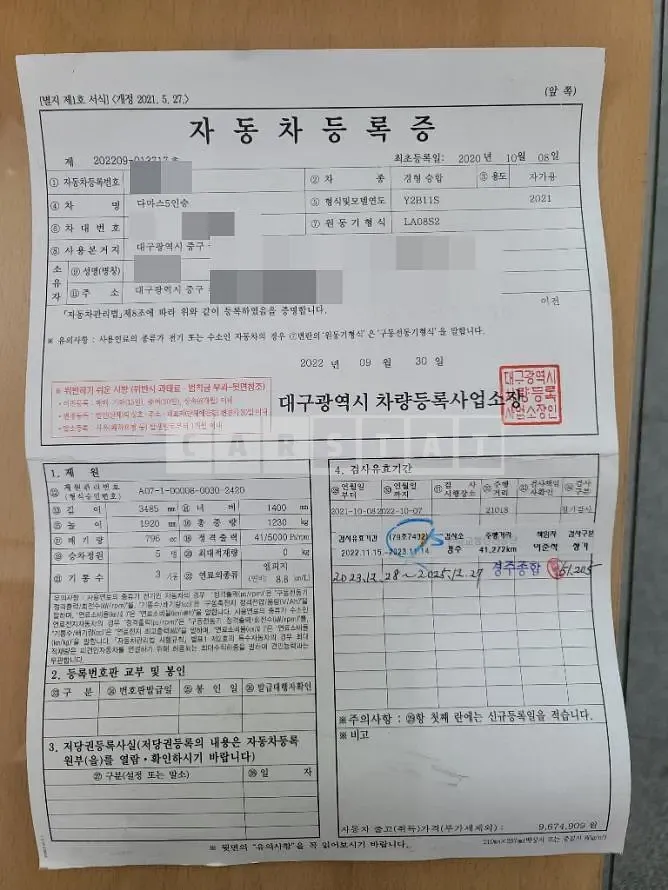 [별지 제1호 서식] <개정 2021. 5. 27.>
(앞 쪽)
자동차등록증
제 202209-013717호
최초등록일: 2020년 10월 08일
① 자동차등록번호 ② 차 종 경형 승합 ③ 용도 자가용
④ 차 명 다마스5인승 ⑤ 형식및모델연도 Y2B11S 2021
⑥ 차대번호 ⑦ 원동기형식 LA08S2
⑧ 사용본거지 대구광역시 중구
소유자 ⑨ 성명(명칭)
주 소 대구광역시 중구
이전
「자동차관리법」제8조에 따라 위와 같이 등록하였음을 증명합니다.
※ 유의사항 : 사용연료의 종류가 전기 또는 수소인 자동차의 경우 ⑦번란의 '원동기형식'은 '구동전동기형식'을 말합니다.
2022 년 09 월 30 일
※ 위반하기 쉬운 사항 (위반시 과태료·범칙금 부과-뒷면참조)
대구광역시 차량등록사업소장
대구광역시
차량등록
사업소장인
CARSTAT
1. 제 원
제원관리번호 (형식승인번호) A07-1-00008-0030-2420
길 이 3485 mm 너 비 1400 mm
높 이 1920 mm 총 중 량 1230 kg
배 기 량 796 cc 정격출력 41/5000 Ps/rpm
승차정원 5 명 최대적재량 0 kg
기 통 수 3 기통 연료의종류 엘피지
(연비) 8.8 km/L
2. 등록번호판 교부 및 봉인
구 분 번호판발급일 봉 인 일 발급대행자확인
3. 저당권등록사실(저당권등록의 내용은 자동차등록
원부(을)를 열람·확인하시기 바랍니다)
구분(설정 또는 말소) 일 자
4. 검사유효기간
연월일부터 연월일까지 검 사 시행장소 주행거리 검사책임자확인 검사구분
2021-10-08 2022-10-07 21018 정기검사
검사유효기간 (79호7432) 검사소 주행거리 책임자 검사구분
2022.11.15~2023.11.14 경주 41,272km 이준석 정기
2023.12.28~2025.12.27 경주종합 61,205
※주의사항 : ㉙항 첫째 란에는 신규등록일을 적습니다.
※비고
자동차 출고(취득)가격(부가세제외) : 9,674,909 원
※ 뒷면의 "유의사항"을 꼭 읽어보시기 바랍니다.